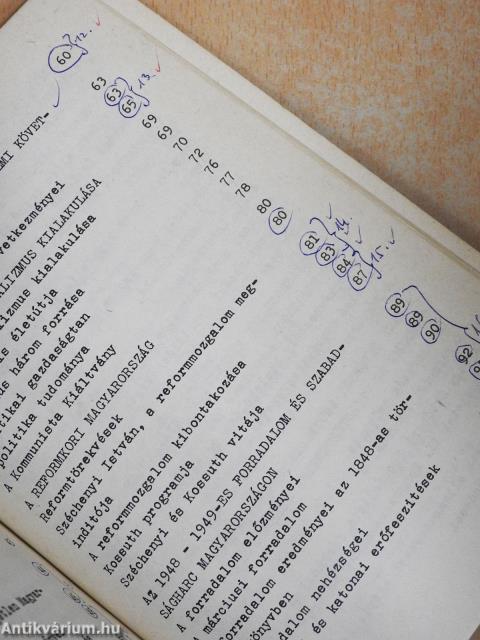 60 12.
63
63 13.
65
69
69
70
72
76
77
78
80
80
81 14.
83
84 15.
87
89
69
90
92
EMI KÖVET-
vetkezményei
ALIZMUS KIALAKULÁSA
izmus kialakulása
s életútja
us három forrása
itikai gazdaságtan
politika tudománya
A Kommunista Kiáltvány
A REFORMKORI MAGYARORSZÁG
Reformtörekvések
Széchenyi István, a reformmozgalom meg-
indítója
A reformmozgalom kibontakozása
Kossuth programja
Széchenyi és Kossuth vitája
AZ 1948 - 1949-ES FORRADALOM ÉS SZABAD-
SÁGHARC MAGYARORSZÁGON
A forradalom előzményei
A márciusi forradalom
forradalom eredményei az 1848-as tör-
könyvben
dalom nehézségei
és katonai erőfeszítések
Antikvárium.hu